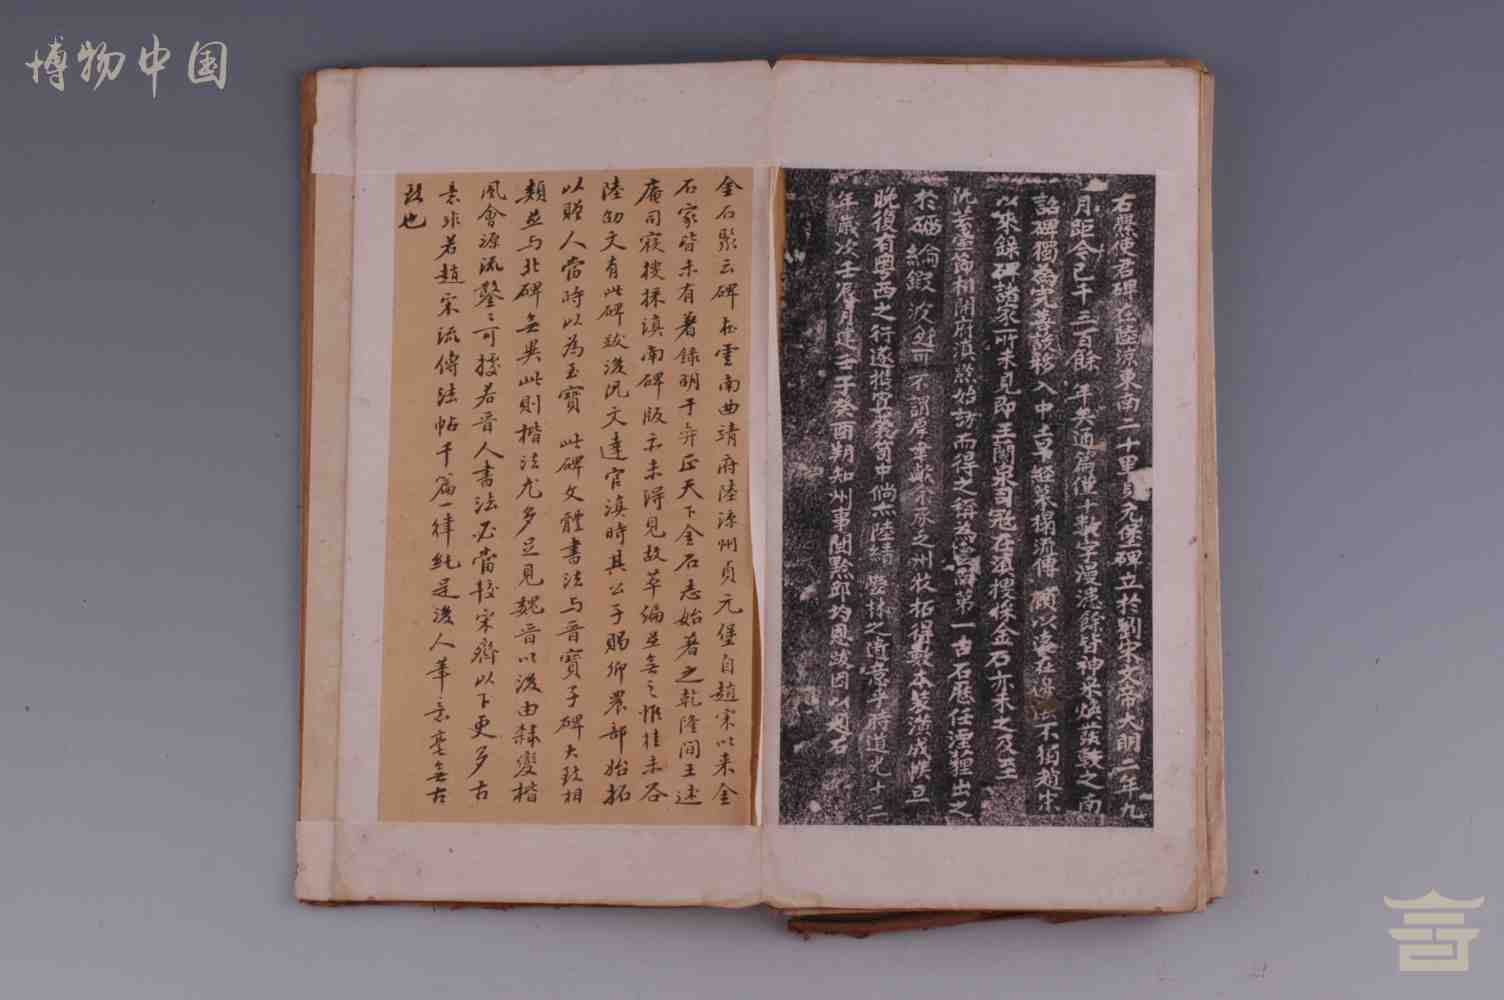 博物中国
右爨使君碑在陸涼東南二十里貞元堡碑立於劉宋文帝大明二年九
月距今已千三百餘年矣通篇僅十數字漫漶餘皆神采煥發較之南
詔碑獨為完善該移入中土早經摹搨流傳顧以遠在邊不獨趙宋
以來錄碑諸家所未見即王蘭泉司寇在滇搜採金石亦未之及至
阮芸臺節相開府滇黔始訪而得之稱為第一古石歷任湮貍出之
於可不謂厚幸歟余承乏州牧拓得數本裝潢成帙旦
晚復有粵西之行遂攜笥中倘亦陸績鬱林之遺意乎時道光十二
年歲次壬辰月建壬子癸酉朔知州事閩黔邱均恩跋因以題石
金石聚云碑在雲南曲靖府陸涼州貞元堡自趙宋以來金
石家皆未有著錄明于弈正天下金石志始著之乾隆間王述
庵司寇搜採滇南碑版亦未得見故萃編並無之惟桂未谷
陸劭文有此碑跋後阮文達官滇時其公子賜卿農部始拓
以贈人當時以為至寶 此碑文體書法与晉寶子碑大致相
類並与北碑無異此則楷法尤多足見魏晉以後由隸變楷
風會源流鑿〻可據若晉人書法必當較宋齊以下更多古
意非若趙宋流傳法帖千篇一律純是後人筆意毫無古
致也